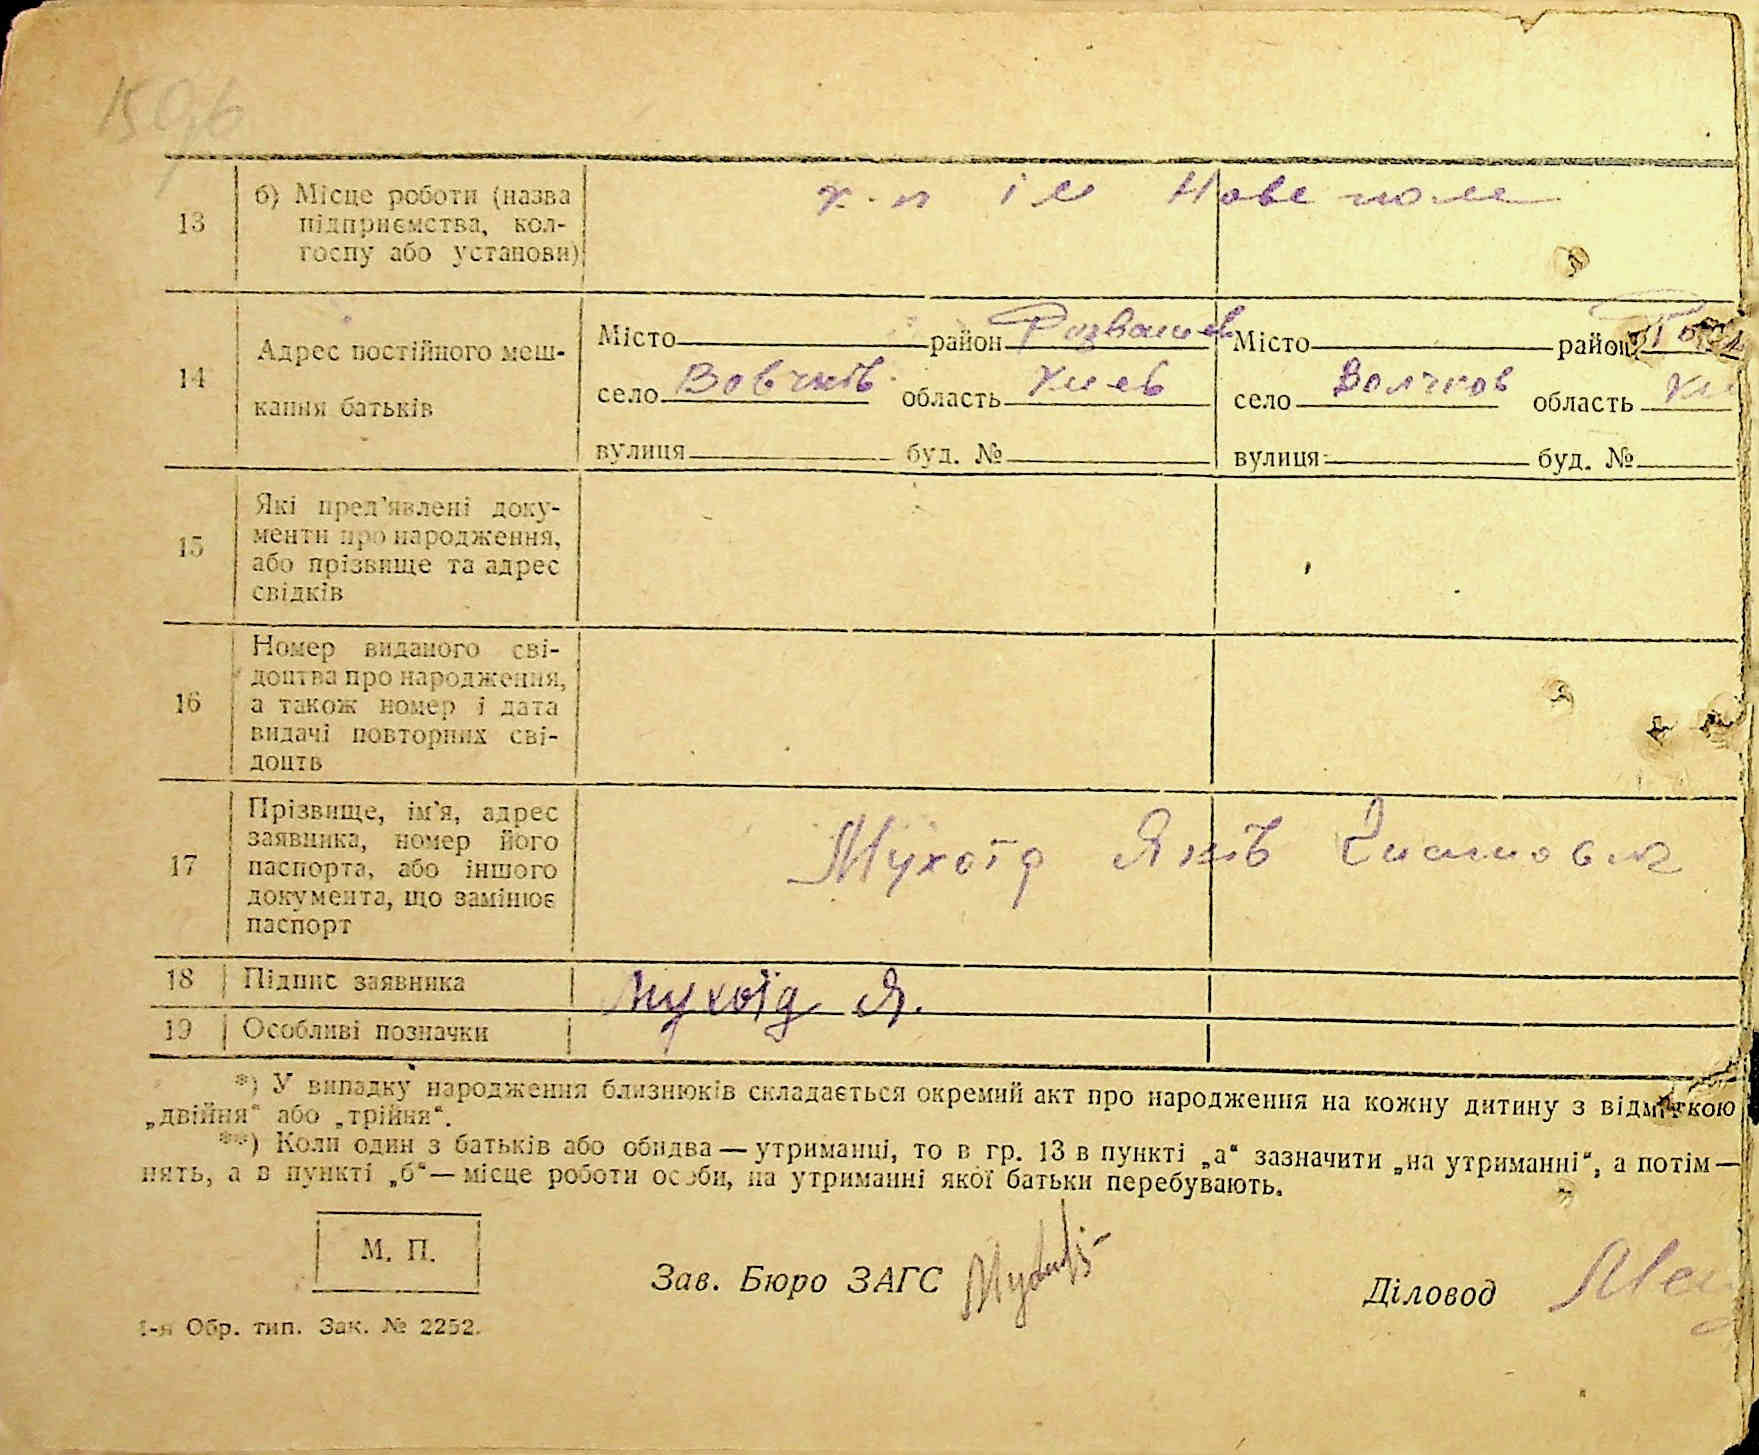 159б
13
б) Місце роботи (назва
підприємства, кол-
госпу або установи)
к.п ім Нове поле
14
Адрес постійного меш-
кання батьків
Місто район Розважев
село Вовчків область Киев
вулиця буд. №
Місто район Роз
село Волчков область Ки
вулиця буд. №
15
Які пред'явлені доку-
менти про народження,
або прізвище та адрес
свідків
16
Номер виданого сві-
доцтва про народження,
а також номер і дата
видачі повторних сві-
доцтв
17
Прізвище, ім'я, адрес
заявника, номер його
паспорта, або іншого
документа, що замінює
паспорт
Мухоїд Яків
18 Підпис заявника Мухоїд Я.
19 Особливі позначки
*) У випадку народження близнюків складається окремий акт про народження на кожну дитину з відміткою
„двійня“ або „трійня“.
**) Коли один з батьків або обидва — утриманці, то в гр. 13 в пункті „а“ зазначити „на утриманні“, а потім —
нять, а в пункті „б“ — місце роботи особи, на утриманні якої батьки перебувають.
М. П.
Зав. Бюро ЗАГС
Діловод
1-я Обр. тип. Зак. № 2252.